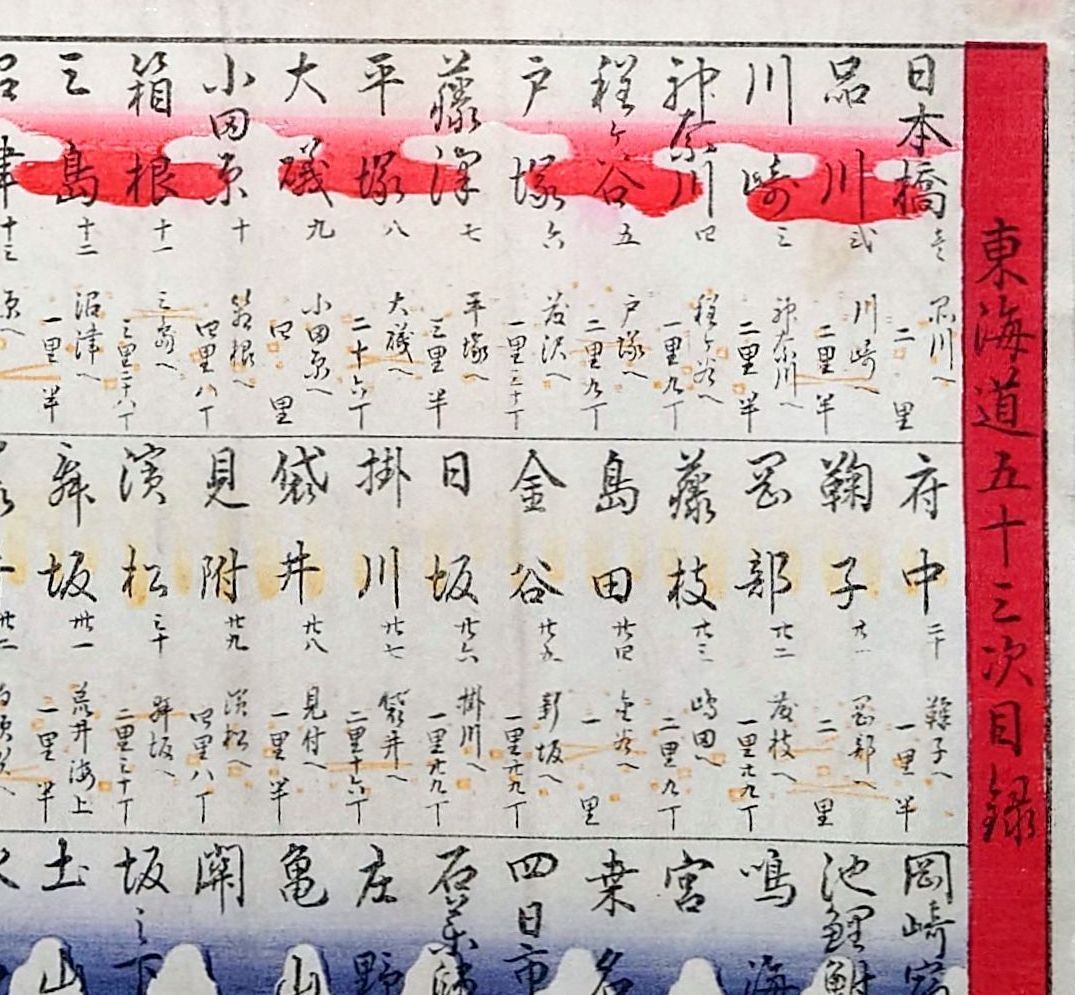 東海道五十三次目録
日本橋 壱 品川へ 二里
品川 弐 川崎へ 二里半
川崎 三 神奈川へ 二里半
神奈川 四 程ヶ谷へ 一里九丁
程ヶ谷 五 戸塚へ 二里九丁
戸塚 六 藤沢へ 一里三十丁
藤澤 七 平塚へ 三里半
平塚 八 大磯へ 二十六丁
大磯 九 小田原へ 四里
小田原 十 箱根へ 四里八丁
箱根 十一 三島へ 三里二十八丁
三島 十二 沼津へ 一里半
沼津 十三 原へ
府中 二十 鞠子へ 一里半
鞠子 廿一 岡部へ 二里
岡部 廿二 藤枝へ 一里廿九丁
藤枝 廿三 嶋田へ 二里九丁
島田 廿四 金谷へ 一里
金谷 廿五 新坂へ 一里廿九丁
日坂 廿六 掛川へ 一里廿九丁
掛川 廿七 袋井へ 二里十六丁
袋井 廿八 見付へ 一里半
見附 廿九 濱松へ 四里八丁
濱松 三十 舞坂へ 二里三十丁
舞坂 卅一 荒井海上 一里半
卅二
岡崎宿
池鯉鮒
鳴海
宮
桑名
四日市
石薬師
庄野
亀山
関
坂之下
土山